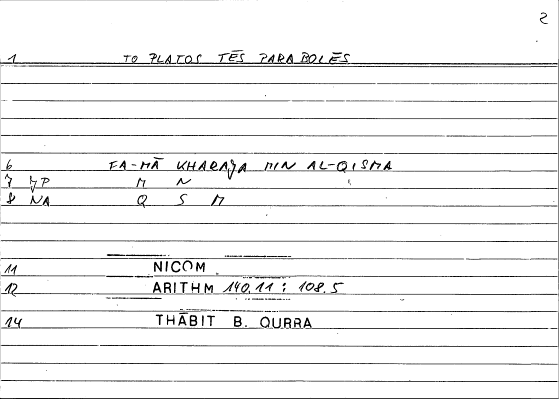 2
1 TO PLATOS TĒS PARABOLĒS
6 FA-MĀ KHARAJA MIN AL-QISMA
7 JP M N
8 NA Q S M
11 NICOM
12 ARITHM 140.11 : 108.5
14 THĀBIT B. QURRA